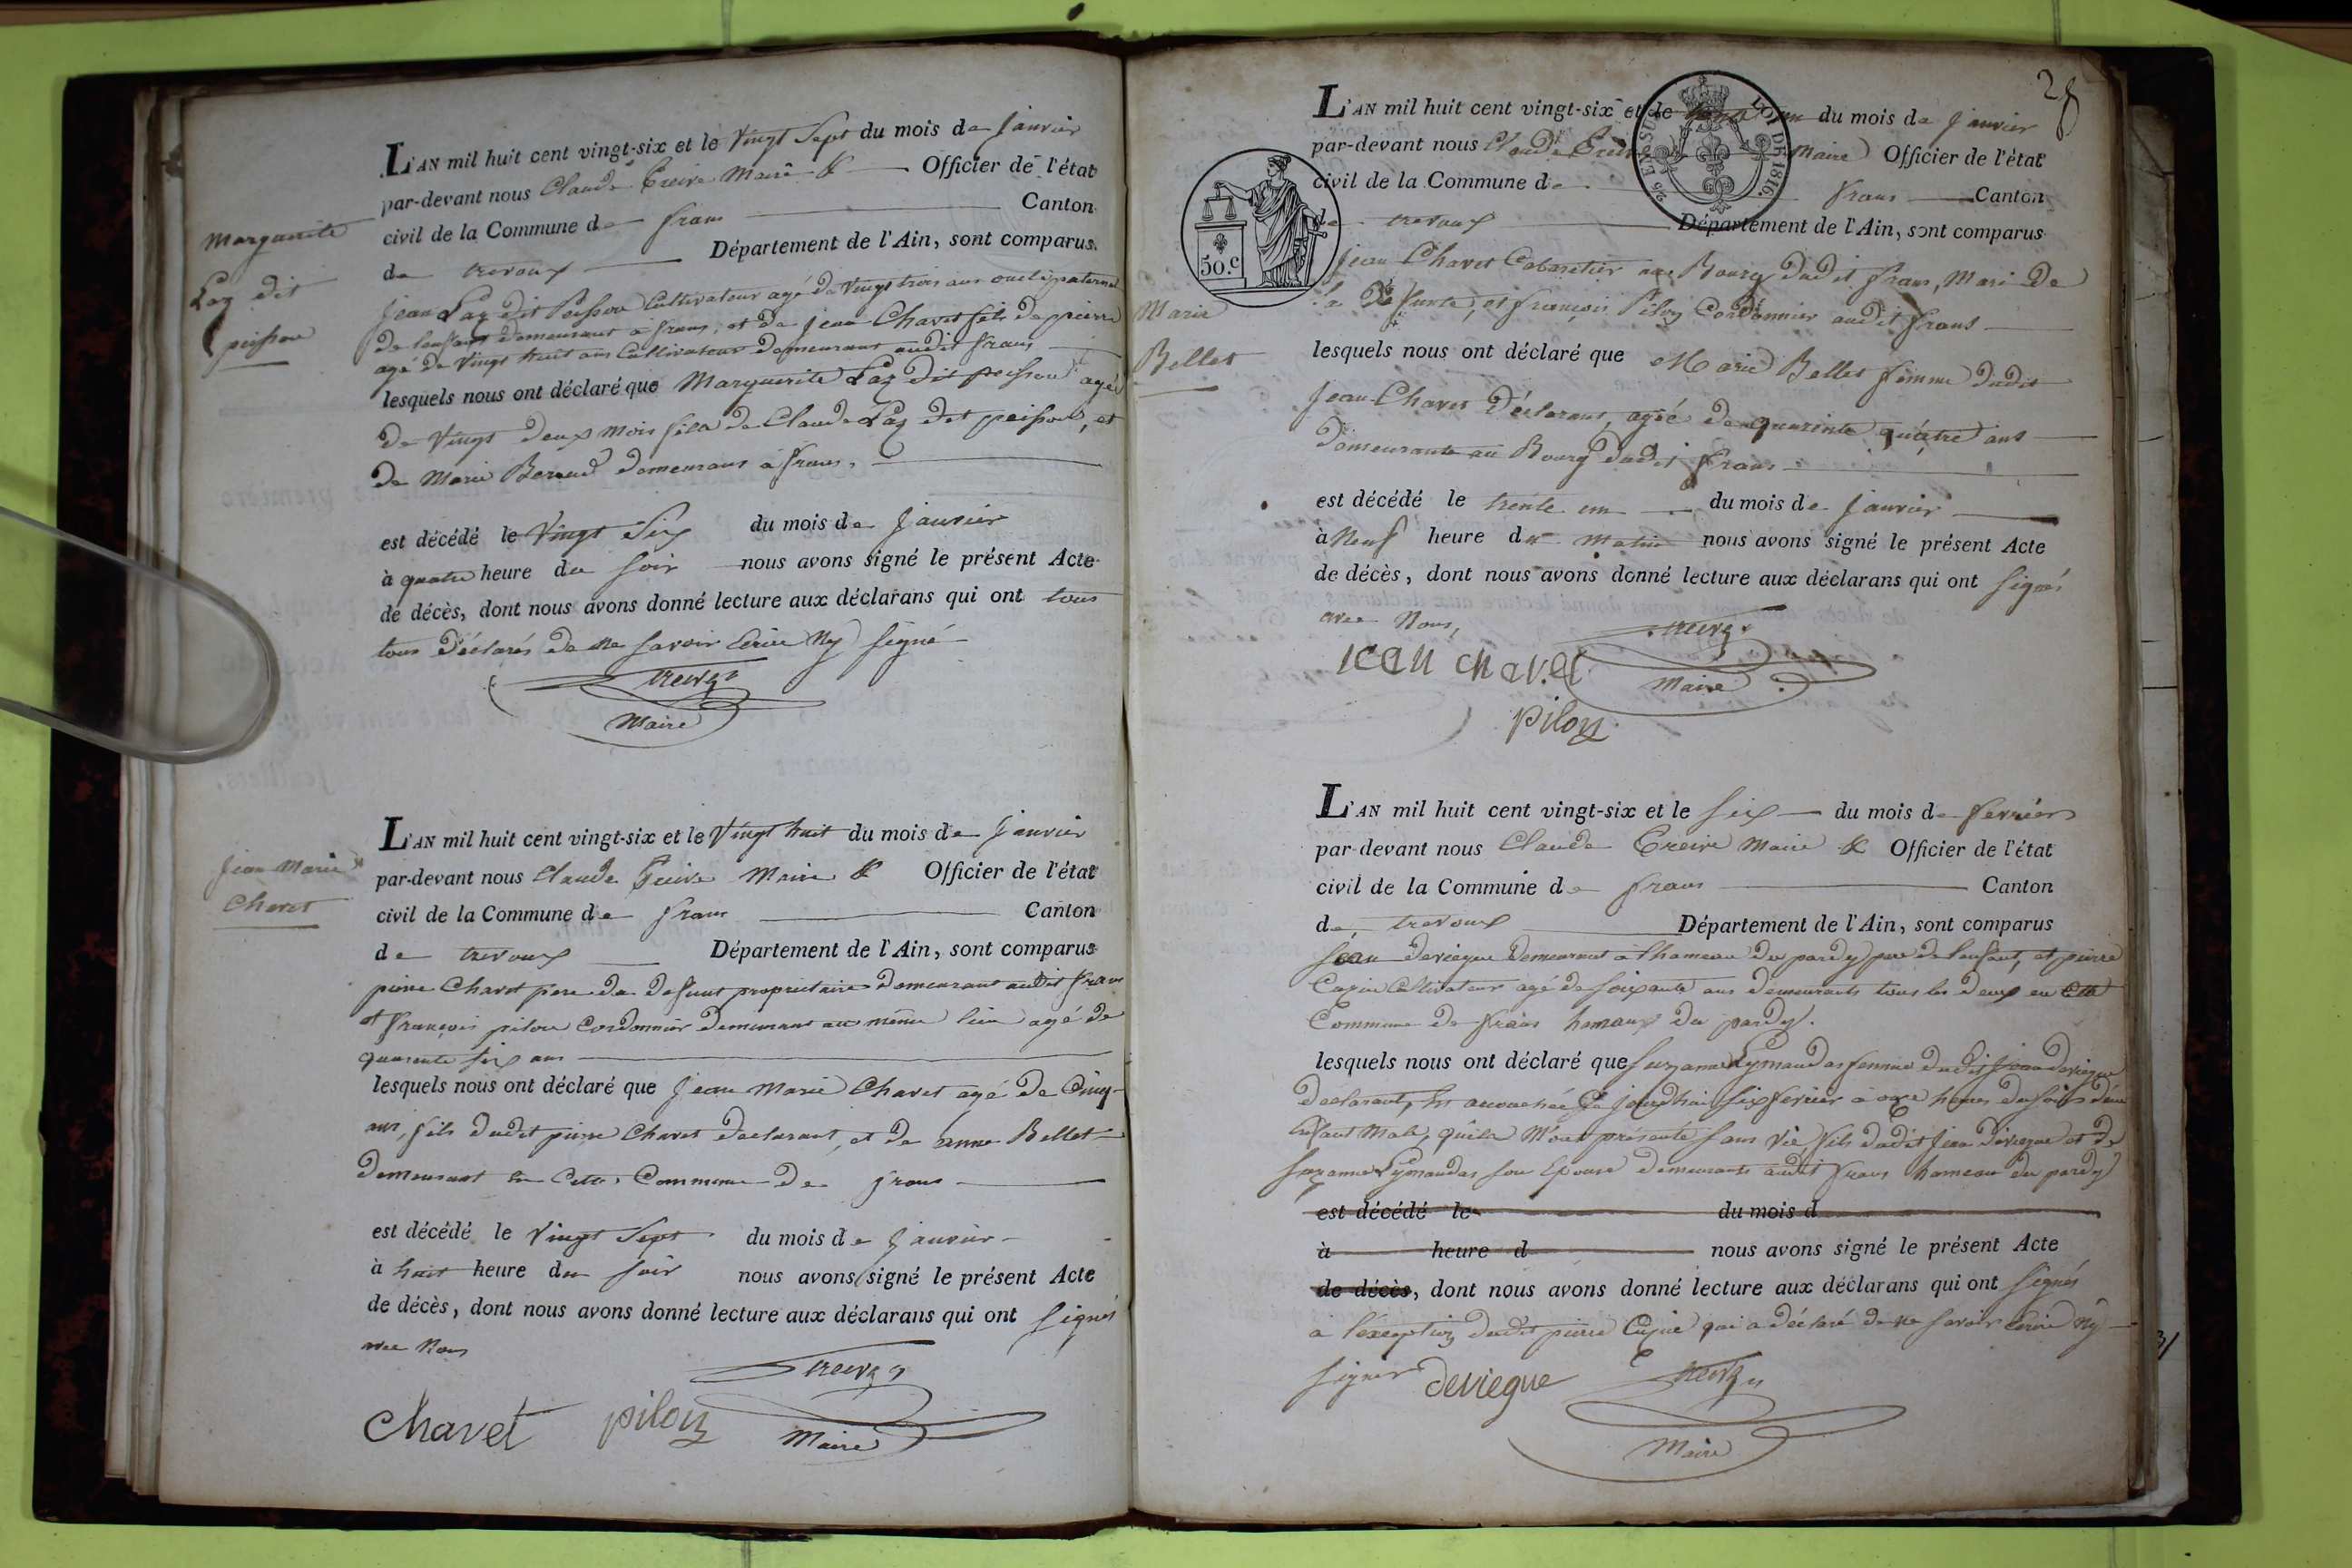 L'AN mil huit cent vingt-six et le Vingt Sept du mois de janvier
par-devant nous Claude Treive Maire & Officier de l'état
civil de la Commune de frans Canton
de trevoux Département de l'Ain, sont comparus
jean Laz dit Peisson Cultivateur agé de Vingt trois ans oncle paternel
de lenfant demeurant a frans, et de jean Chavet fils de pierre
agé de Vingt huit ans Cultivateur demeurant audit frans
lesquels nous ont déclaré que Marguerite Laz dit peisson agée
de Vingt deux mois fille de Claude Laz dit peisson, et
de Marie Beraud demeurans à frans.
est décédé le Vingt Six du mois de janvier
à quatre heure du soir nous avons signé le présent Acte
de décès, dont nous avons donné lecture aux déclarans qui ont tous
tous déclarés de ne savoir Ecrire Ny signé
Treive
Maire
Marguerite
Laz dit
peisson
L'AN mil huit cent vingt-six et le Vingt huit du mois de janvier
par-devant nous Claude Treive Maire & Officier de l'état
civil de la Commune de frans Canton
de trevoux Département de l'Ain, sont comparus
pierre Chavet pere du defunt proprietaire demeurant audit frans
et françois pilon Cordonnier demeurant au même lieu agé de
quarente six ans
lesquels nous ont déclaré que jean Marie Chavet agé de Cinq
ans, fils dudit pierre Chavet declarant, et de anne Bellet
demeurant en Cette Commune de frans
est décédé le Vingt Sept du mois de janvier
à huit heure du soir nous avons signé le présent Acte
de décès, dont nous avons donné lecture aux déclarans qui ont signés
avec Nous
Treive
chavet pilon Maire
jean Marie
Chavet
28
L'AN mil huit cent vingt-six et le trente un du mois de janvier
par-devant nous Claude Treive Maire Officier de l'état
civil de la Commune de frans Canton
de trevoux Département de l'Ain, sont comparus
jean Chavet Cabaretier au Bourg dudit frans, Mari de
la défunte, et françois Pilon Cordonnier audit frans
lesquels nous ont déclaré que Marie Bellet femme dudit
jean Chavet déclarant, agée de quarente quatre ans
demeurante au Bourg dudit frans
est décédé le trente un du mois de janvier
à Neuf heure du matin nous avons signé le présent Acte
de décès, dont nous avons donné lecture aux déclarans qui ont signés
avec Nous,
Treive
jean chavet Maire
pilon
Marie
Bellet
50.C
LOI DE 1816.
L'AN mil huit cent vingt-six et le six du mois de fevrier
par-devant nous Claude Treive Maire & Officier de l'état
civil de la Commune de frans Canton
de trevoux Département de l'Ain, sont comparus
jean deviegue demeurant à lhameau du pardy pere de lenfant, et pierre
Cultivateur agé de soixante ans demeurants tous les deux en Cette
Commune de frans hamaux du pardy.
lesquels nous ont déclaré que suzanne femme dudit jean deviegue
declarant, Est accouchée Ce jourdhui six fevrier à onze heures du soir d'un
enfant Male, qu'ils M'ont présenté sans Vie fils dudit jean deviegue et de
suzanne son Epouse demeurants audit frans hameau du pardy
est décédé le du mois d
à heure d nous avons signé le présent Acte
de décès, dont nous avons donné lecture aux déclarans qui ont signés
a l'éxception dudit pierre qui a déclaré de ne savoir Ecrire Ny
signer deviegue Treive
Maire